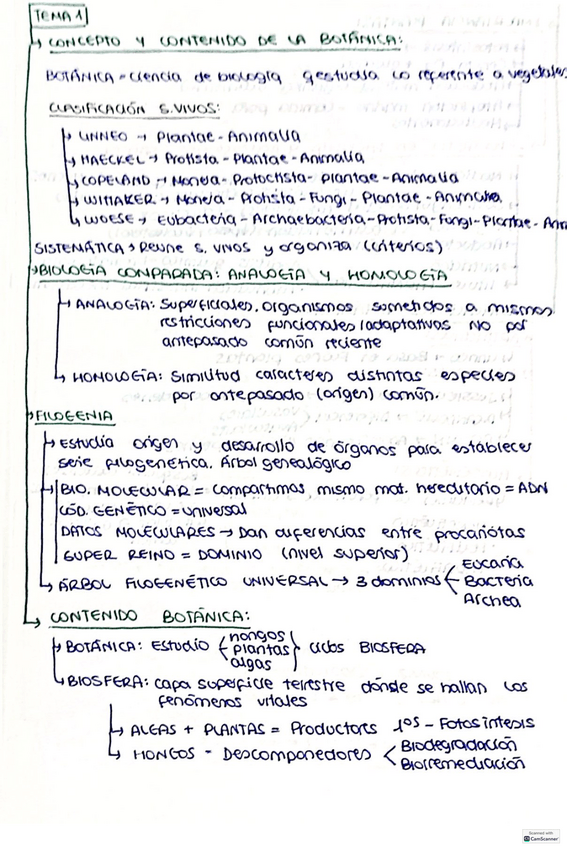 TEMA 1
↳ CONCEPTO Y CONTENIDO DE LA BOTÁNICA:
BOTÁNICA = Ciencia de biología q estudia lo referente a vegetales
CLASIFICACIÓN S.VIVOS:
↳ LINNEO → Plantae - Animalia
↳ HAECKEL → Protista - Plantae - Animalia
↳ COPELAND → Monera - Protoctista - Plantae - Animalia
↳ WITTAKER → Monera - Protista - Fungi - Plantae - Animalia
↳ WOESE → Eubacteria - Archaebacteria - Protista - Fungi - Plantae - Ani
SISTEMÁTICA → Reune s. vivos y organiza (criterios)
↳ BIOLOGÍA COMPARADA: ANALOGÍA Y HOMOLOGÍA
↳ ANALOGÍA: Superficiales. organismos sometidos a mismos
restricciones funcionales/adaptativos NO por
antepasado común reciente
↳ HOMOLOGÍA: Similitud caracteres distintas especies
por antepasado (origen) común.
↳ FILOGENIA
↳ Estudia origen y desarrollo de órganos para establecer
serie filogenética. Árbol genealógico
↳ BIO. MOLECULAR = compartimos mismo mat. hereditario = ADN
CÓD. GENÉTICO = universal
DATOS MOLECULARES → Dan diferencias entre procariotas
SUPER REINO = DOMINIO (nivel superior)
↳ ÁRBOL FILOGENÉTICO UNIVERSAL → 3 dominios
Eucaria
Bacteria
Archea
↳ CONTENIDO BOTÁNICA:
↳ BOTÁNICA: Estudio { hongos plantas algas } ciclos BIOSFERA
↳ BIOSFERA: capa superficie terrestre dónde se hallan los
fenómenos vitales
↳ ALGAS + PLANTAS = Productores 1os - Fotosíntesis
↳ HONGOS - Descomponedores < Biodegradación
Biorremediación
Scanned with
CamScanner